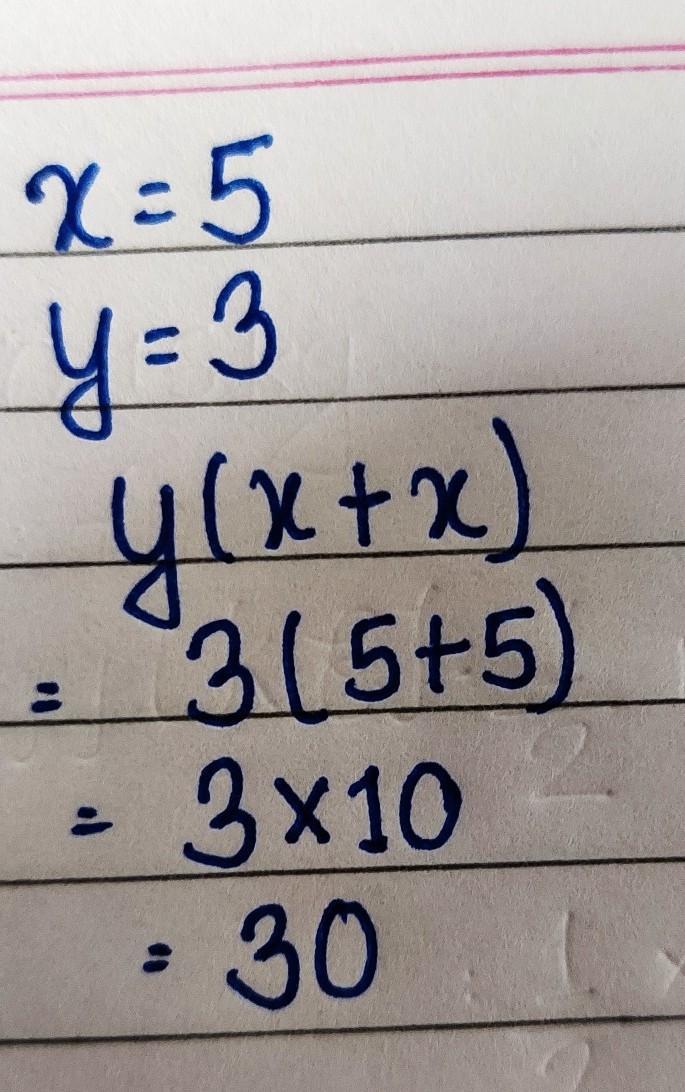 x = 5
y = 3
y(x + x)
= 3(5+5)
= 3×10
= 30